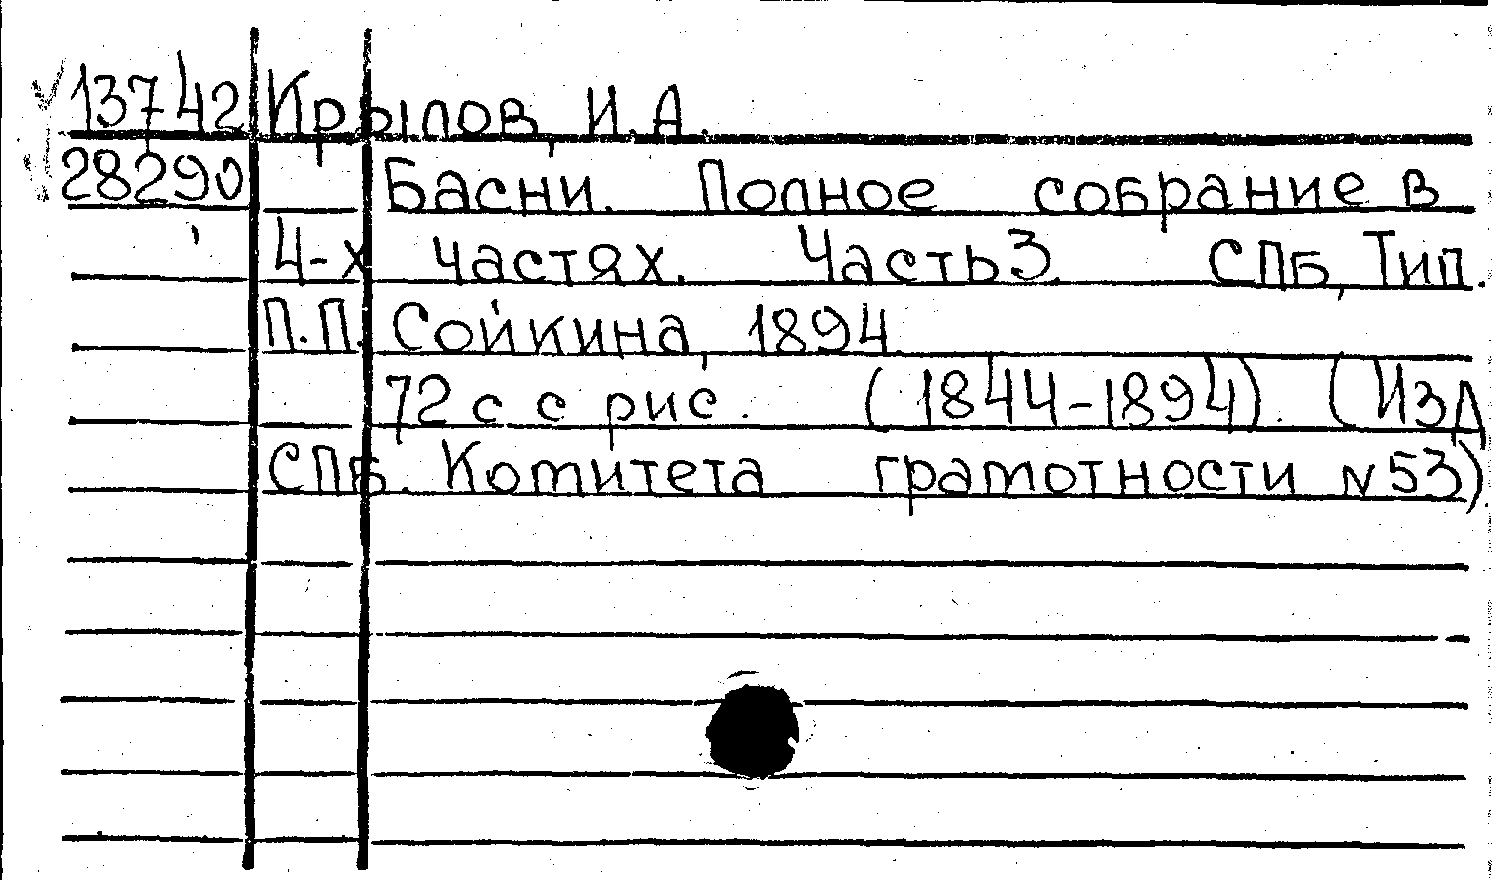 13742 Крылов, И.А.
28290 Басни. Полное собрание в
4-х частях. Часть 3. СПб, Тип.
П.П. Сойкина, 1894.
72 с с рис. (1844-1894). (Изд
СПб. Комитета грамотности N 53).